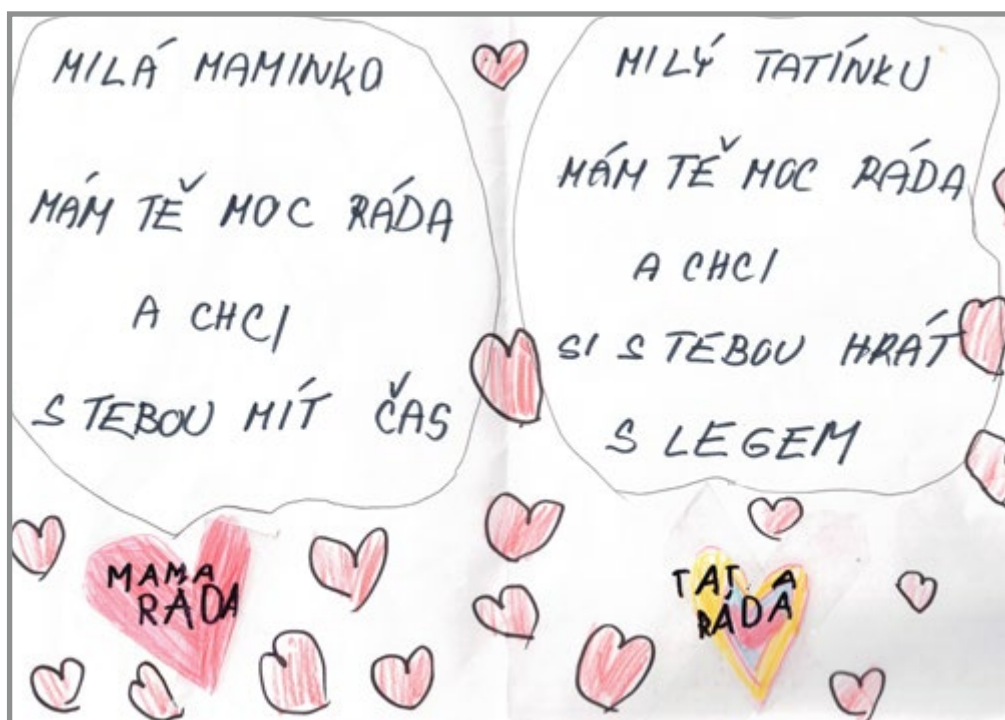 MILÁ MAMINKO
MÁM TĚ MOC RÁDA
A CHCI
S TEBOU MÍT ČAS
MAMA
RÁDA
MILÝ TATÍNKU
MÁM TĚ MOC RÁDA
A CHCI
SI S TEBOU HRÁT
S LEGEM
TATA
RÁDA